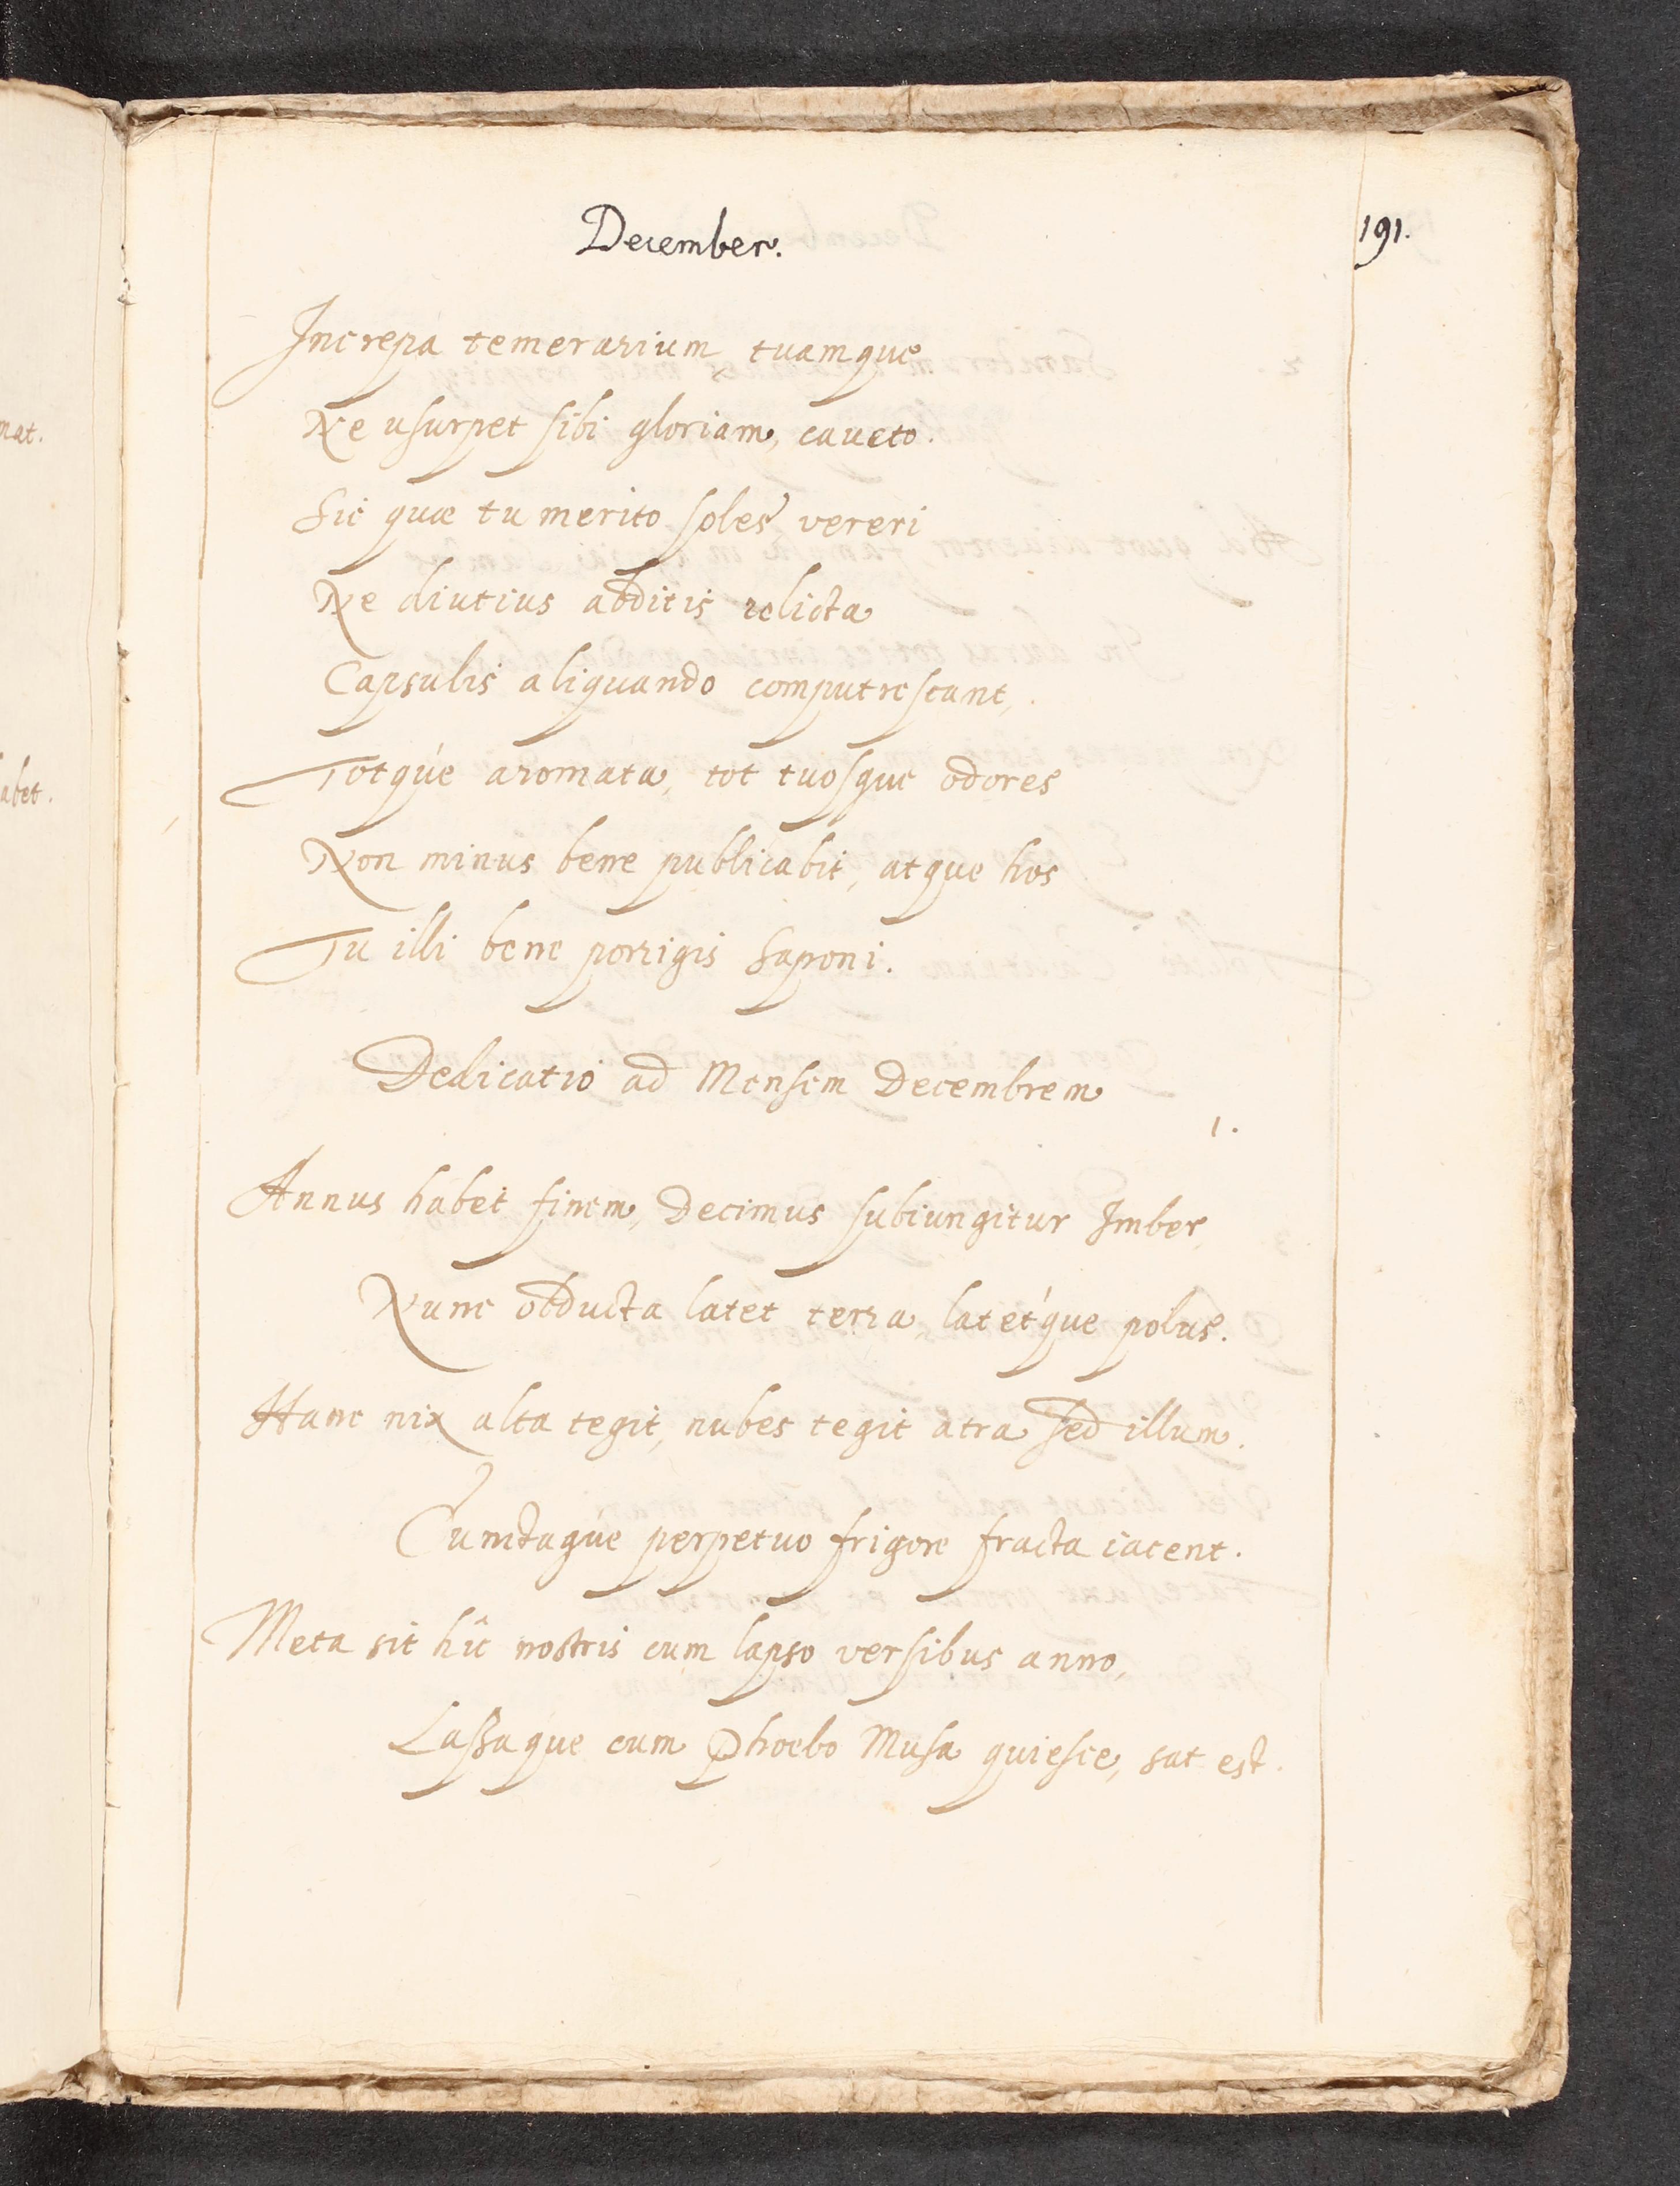 December.
191.
Increpa temerarium tuamque
Ne usurpet sibi gloriam, caueto.
Sic quæ tu merito soles vereri
Ne diutius abditis relicta
Capsulis aliquando computrescant,
Totqúe aromata, tot tuosque odores
Non minus bene publicabit, atque hos
Tu illi bene porrigis saponi.
Dedicatio ad Mensem Decembrem
1.
Annus habet finem, Decimus subiungitur Imber,
Nunc obducta latet terra, latetq́ue polus.
Hanc nix alta tegit, nubes tegit atra sed illum.
Cunctaque perpetuo frigore fracta iacent.
Meta sit hîc nostris cum lapso versibus anno,
Lassaque cum Phoebo Musa quiesce, sat est.
mat.
abet.